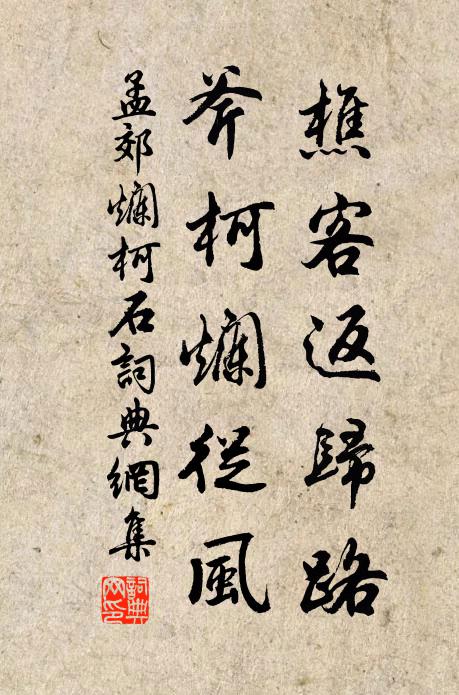 樵客返歸路
斧柯爛從風
孟郊爛柯石詞典網集
詞典
网印